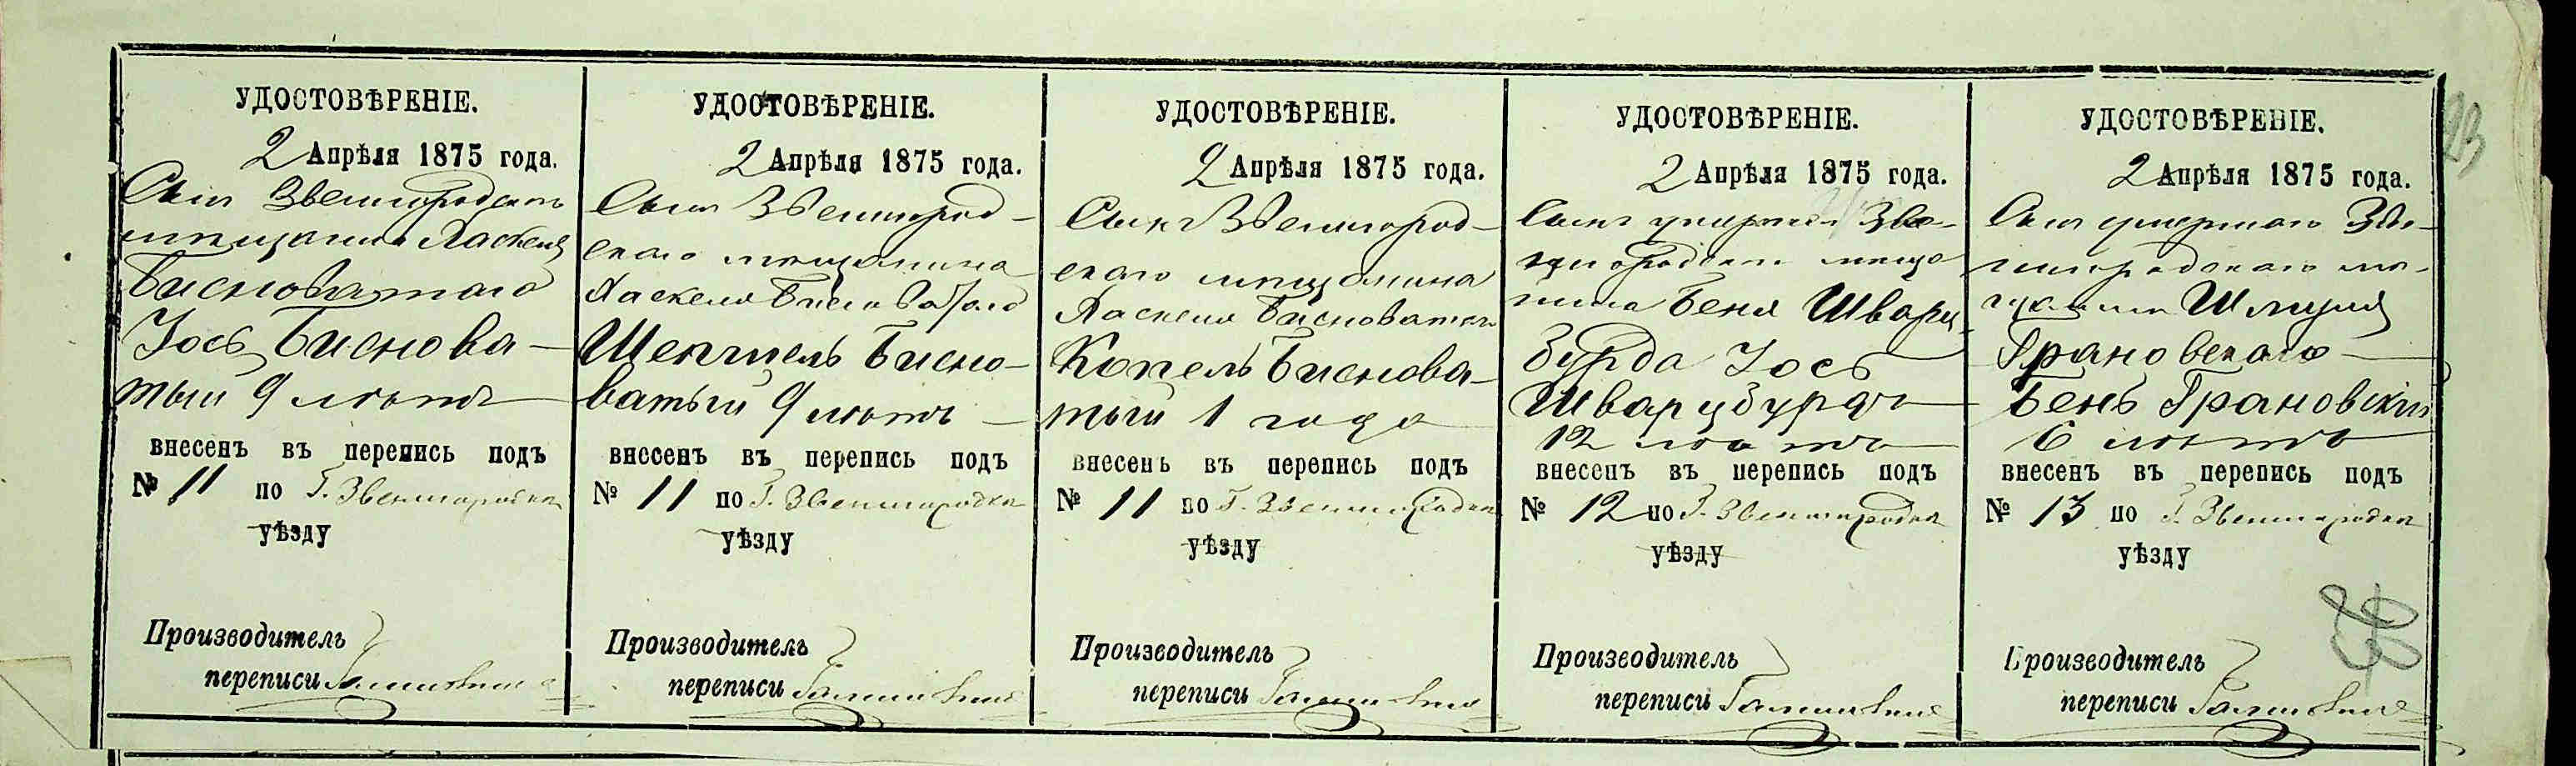 УДОСТОВѢРЕНІЕ.
2 Апрѣля 1875 года.
Сынъ Звенигородскаго
мѣщанина Хаскеля
Бисноватаго
Іось Биснова-
тый 9 лѣтъ
внесенъ въ перепись подъ
№ 11 по Г. Звенигородкѣ
уѣзду
Производитель
переписи
УДОСТОВѢРЕНІЕ.
2 Апрѣля 1875 года.
Сынъ Звенигород-
скаго мѣщанина
Хаскеля Бисноватаго
Шепшель Бисно-
ватый 9 лѣтъ
внесенъ въ перепись подъ
№ 11 по Г. Звенигородкѣ
уѣзду
Производитель
переписи
УДОСТОВѢРЕНІЕ.
2 Апрѣля 1875 года.
Сынъ Звенигород-
скаго мѣщанина
Хаскеля Бисноватаго
Копель Биснова-
тый 1 года
внесенъ въ перепись подъ
№ 11 по Г. Звенигородкѣ
уѣзду
Производитель
переписи
УДОСТОВѢРЕНІЕ.
2 Апрѣля 1875 года.
Сынъ умершаго Зве-
нигородскаго мѣща-
нина Беня Шварц-
бурда Іось
Шварцбурдъ
12 лѣтъ
внесенъ въ перепись подъ
№ 12 по Г. Звенигородкѣ
уѣзду
Производитель
переписи
УДОСТОВѢРЕНІЕ.
2 Апрѣля 1875 года.
Сынъ умершаго Зве-
нигородскаго мѣ-
щанина Шмуля
Грановскаго
Бень Грановскій
6 лѣтъ
внесенъ въ перепись подъ
№ 13 по Г. Звенигородкѣ
уѣзду
Производитель
переписи